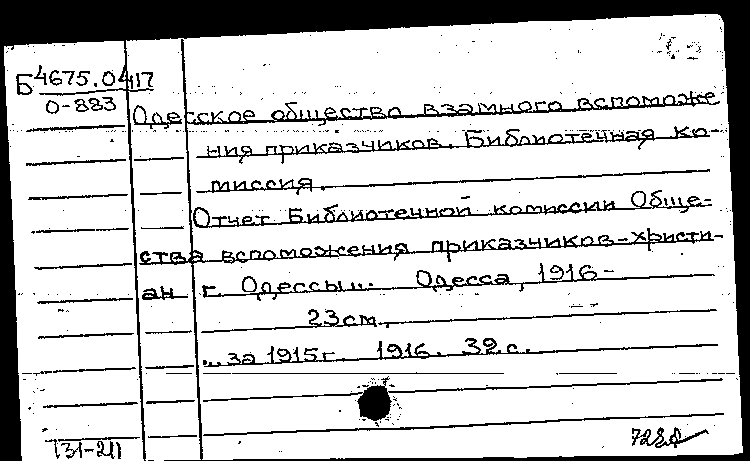 Б4675.0417
0-883
Одесское общество взамного вспоможе
ния приказчиков. Библиотечная ко-
миссия.
Отчет Библиотечной комиссии Обще-
ства вспоможения приказчиков-христи-
ан г. Одессы... Одесса, 1916-
23см.
...за 1915г. 1916. 39с.
131-211